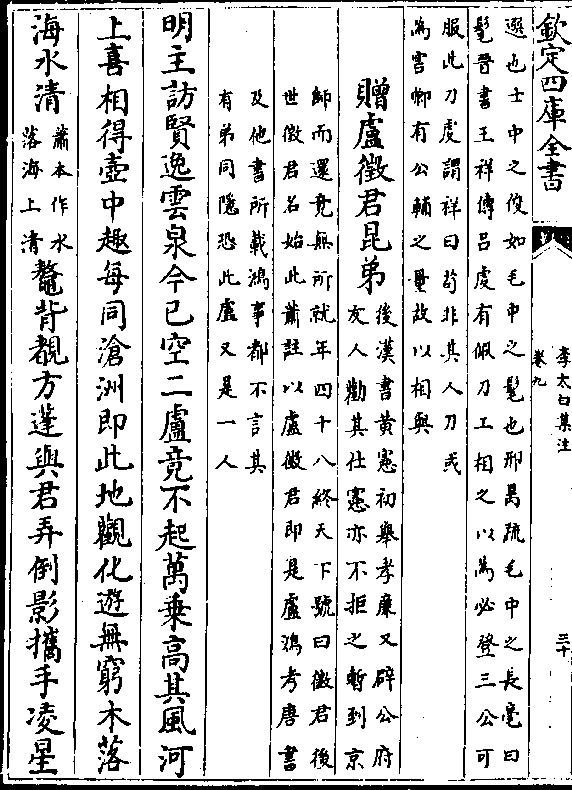 欽定四庫全書
李太白集注
卷九
三十
選也士中之俊如毛中之髦也邢昺疏毛中之長毫曰
髦晉書王祥傳吕虔有佩刀工相之以為必登三公可
服此刀虔謂祥曰苟非其人刀或
為害卿有公輔之量故以相與
贈盧徵君昆弟
後漢書黃憲初舉孝廉又辟公府
友人勸其仕憲亦不拒之暫到京
師而還竟無所就年四十八終天下號曰徵君後
世徵君名始此蕭註以盧徵君即是盧鴻考唐書
及他書所載鴻事都不言其
有弟同隠恐此盧又是一人
明主訪賢逸雲泉今已空二盧竟不起萬乗髙其風河
上喜相得壺中趣每同滄洲即此地觀化遊無窮木落
海水清
蕭本作水
落海上清
鼇背覩方蓬與君弄倒影攜手凌星